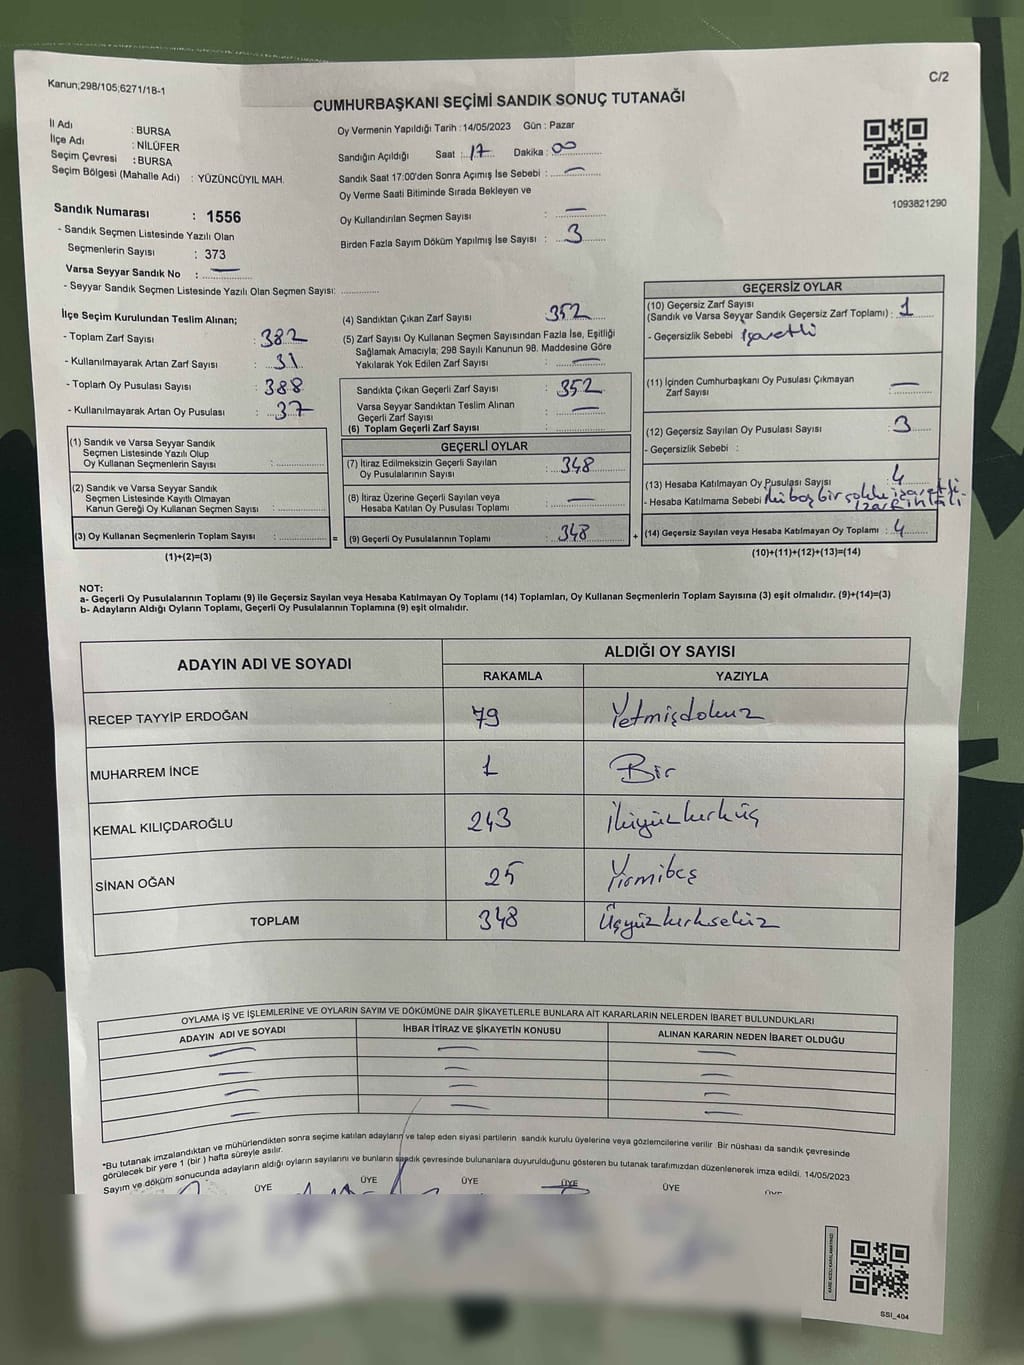 Kanun;298/105;6271/18-1
C/2
CUMHURBAŞKANI SEÇİMİ SANDIK SONUÇ TUTANAĞI
İl Adı : BURSA
İlçe Adı : NİLÜFER
Seçim Çevresi : BURSA
Seçim Bölgesi (Mahalle Adı) : YÜZÜNCÜYIL MAH.
Oy Vermenin Yapıldığı Tarih :14/05/2023 Gün : Pazar
Sandığın Açıldığı Saat : 17 Dakika : 00
Sandık Saat 17:00'den Sonra Açımış İse Sebebi : —
Oy Verme Saati Bitiminde Sırada Bekleyen ve
Oy Kullandırılan Seçmen Sayısı : —
Birden Fazla Sayım Döküm Yapılmış İse Sayısı : 3
1093821290
Sandık Numarası : 1556
- Sandık Seçmen Listesinde Yazılı Olan
Seçmenlerin Sayısı : 373
Varsa Seyyar Sandık No : —
- Seyyar Sandık Seçmen Listesinde Yazılı Olan Seçmen Sayısı:
İlçe Seçim Kurulundan Teslim Alınan;
- Toplam Zarf Sayısı : 382
- Kullanılmayarak Artan Zarf Sayısı : 31
- Toplam Oy Pusulası Sayısı : 388
- Kullanılmayarak Artan Oy Pusulası : 37
(1) Sandık ve Varsa Seyyar Sandık
Seçmen Listesinde Yazılı Olup
Oy Kullanan Seçmenlerin Sayısı :
(2) Sandık ve Varsa Seyyar Sandık
Seçmen Listesinde Kayıtlı Olmayan
Kanun Gereği Oy Kullanan Seçmen Sayısı :
(3) Oy Kullanan Seçmenlerin Toplam Sayısı : =
(1)+(2)=(3)
(4) Sandıktan Çıkan Zarf Sayısı : 352
(5) Zarf Sayısı Oy Kullanan Seçmen Sayısından Fazla İse, Eşitliği
Sağlamak Amacıyla; 298 Sayılı Kanunun 98. Maddesine Göre
Yakılarak Yok Edilen Zarf Sayısı : —
Sandıkta Çıkan Geçerli Zarf Sayısı : 352
Varsa Seyyar Sandıktan Teslim Alınan
Geçerli Zarf Sayısı : —
(6) Toplam Geçerli Zarf Sayısı :
GEÇERLİ OYLAR
(7) İtiraz Edilmeksizin Geçerli Sayılan
Oy Pusulalarının Sayısı : 348
(8) İtiraz Üzerine Geçerli Sayılan veya
Hesaba Katılan Oy Pusulası Toplamı : —
(9) Geçerli Oy Pusulalarının Toplamı : 348 +
GEÇERSİZ OYLAR
(10) Geçersiz Zarf Sayısı
(Sandık ve Varsa Seyyar Sandık Geçersiz Zarf Toplamı) : 1
- Geçersizlik Sebebi işaretli
(11) İçinden Cumhurbaşkanı Oy Pusulası Çıkmayan
Zarf Sayısı : —
(12) Geçersiz Sayılan Oy Pusulası Sayısı : 3
- Geçersizlik Sebebi :
(13) Hesaba Katılmayan Oy Pusulası Sayısı : 4
- Hesaba Katılmama Sebebi iki boş bir işaretli
(14) Geçersiz Sayılan veya Hesaba Katılmayan Oy Toplamı : 4
(10)+(11)+(12)+(13)=(14)
NOT:
a- Geçerli Oy Pusulalarının Toplamı (9) ile Geçersiz Sayılan veya Hesaba Katılmayan Oy Toplamı (14) Toplamları, Oy Kullanan Seçmenlerin Toplam Sayısına (3) eşit olmalıdır. (9)+(14)=(3)
b- Adayların Aldığı Oyların Toplamı, Geçerli Oy Pusulalarının Toplamına (9) eşit olmalıdır.
ADAYIN ADI VE SOYADI
ALDIĞI OY SAYISI
RAKAMLA YAZIYLA
RECEP TAYYİP ERDOĞAN 79 Yetmişdokuz
MUHARREM İNCE 1 Bir
KEMAL KILIÇDAROĞLU 243 İkiyüzkırküç
SİNAN OĞAN 25 Yirmibeş
TOPLAM 348 Üçyüzkırksekiz
OYLAMA İŞ VE İŞLEMLERİNE VE OYLARIN SAYIM VE DÖKÜMÜNE DAİR ŞİKAYETLERLE BUNLARA AİT KARARLARIN NELERDEN İBARET BULUNDUKLARI
ADAYIN ADI VE SOYADI İHBAR İTİRAZ VE ŞİKAYETİN KONUSU ALINAN KARARIN NEDEN İBARET OLDUĞU
*Bu tutanak imzalandıktan ve mühürlendikten sonra seçime katılan adayların ve talep eden siyasi partilerin sandık kurulu üyelerine veya gözlemcilerine verilir Bir nüshası da sandık çevresinde
görülecek bir yere 1 (bir ) hafta süreyle asılır.
Sayım ve döküm sonucunda adayların aldığı oyların sayılarını ve bunların sandık çevresinde bulunanlara duyurulduğunu gösteren bu tutanak tarafımızdan düzenlenerek imza edildi. 14/05/2023
ÜYE ÜYE ÜYE ÜYE ÜYE
SSI_404